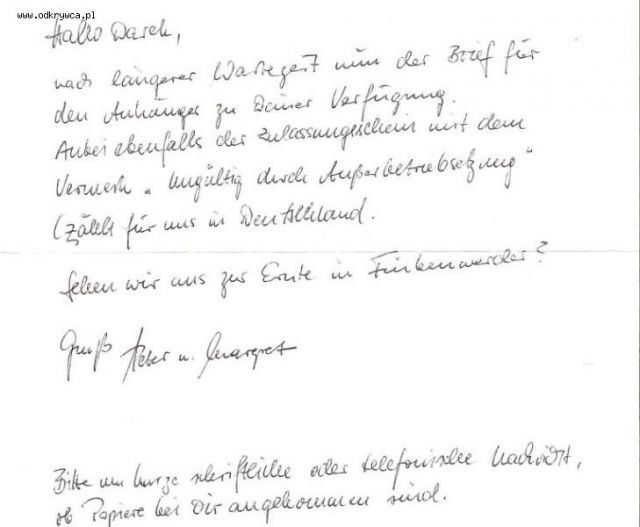 www.odkrywca.pl
Hallo Darek,
nach längerer Wartezeit nun der Brief für
den Anhänger zu Deiner Verfügung.
Anbei ebenfalls der Zulassungsschein mit dem
Vermerk „Ungültig durch Außerbetriebsetzung“
(zählt für uns in Deutschland.
Sehen wir uns zur Ernte in Finkenwerder?
Gruß Peter u. Margret
Bitte um kurze schriftliche oder telefonische Nachricht,
ob Papiere bei Dir angekommen sind.